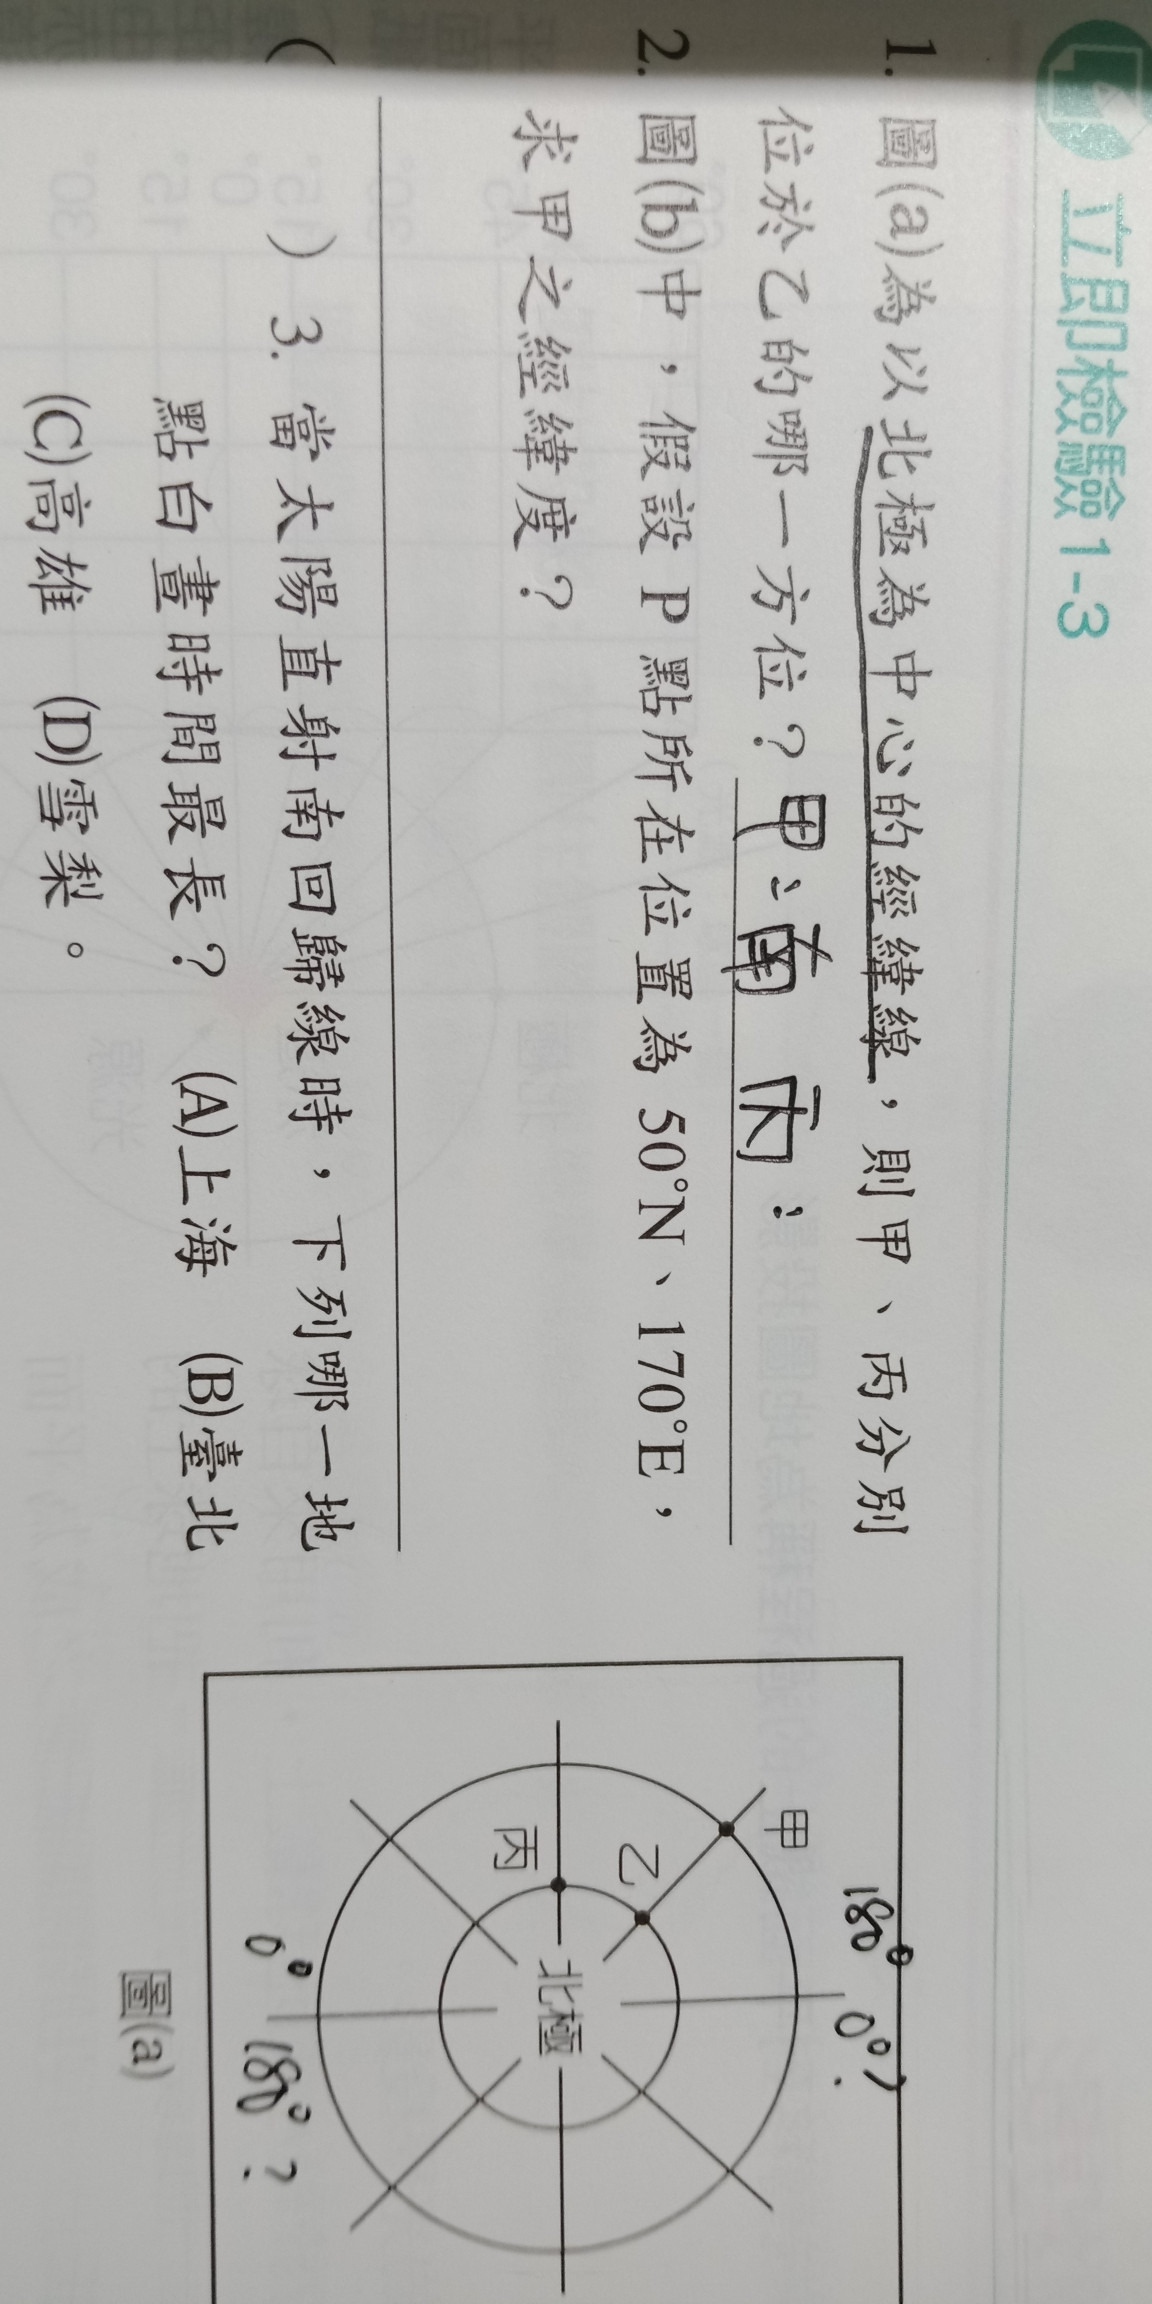 立即檢驗 1-3
1. 圖(a)為以北極為中心的經緯線，則甲、丙分別
位於乙的哪一方位？甲：南 丙：
2. 圖(b)中，假設 P 點所在位置為 50°N、170°E，
求甲之經緯度？
( ) 3. 當太陽直射南回歸線時，下列哪一地
點白晝時間最長？ (A)上海 (B)臺北
(C)高雄 (D)雪梨。
180° 0°?
甲
乙
丙
北極
0° 180°?
圖(a)